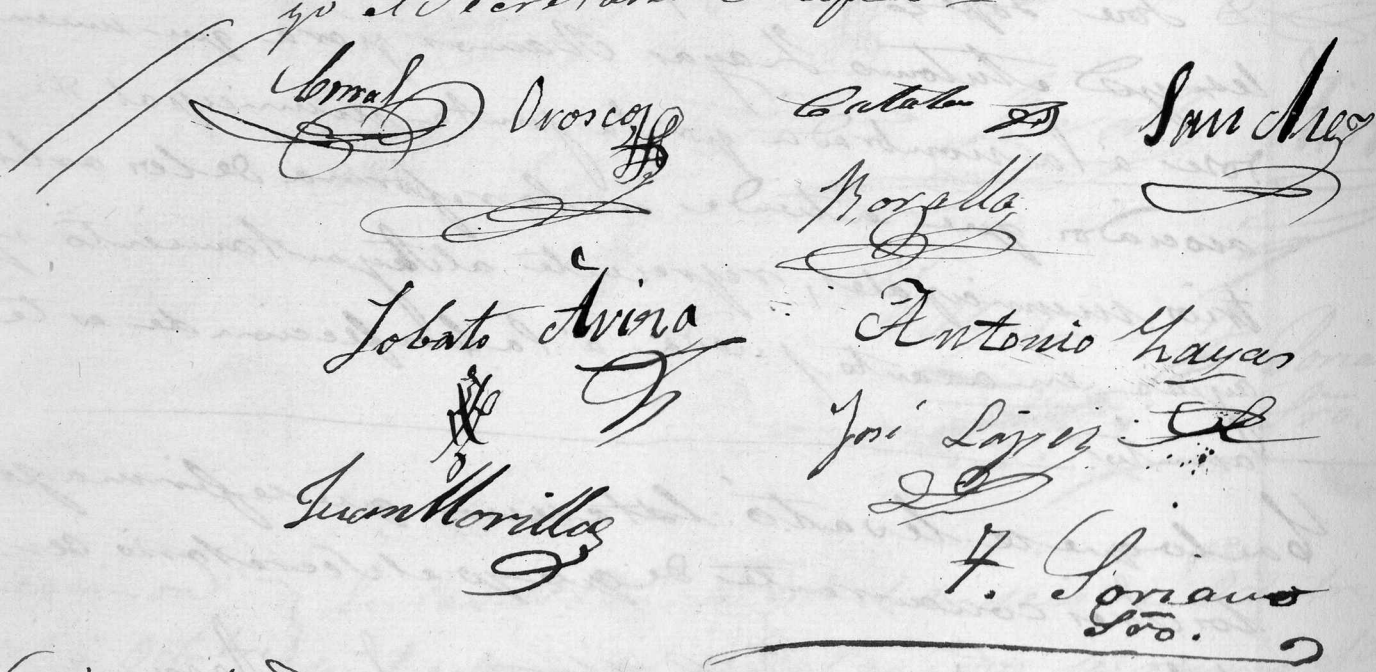 yo el Secretario
Corral Orosco Catalan Sanchez
Bonilla
Lobato Avina Antonio Zayas
José López
Juan Morillas
F. Soriano
Srio.